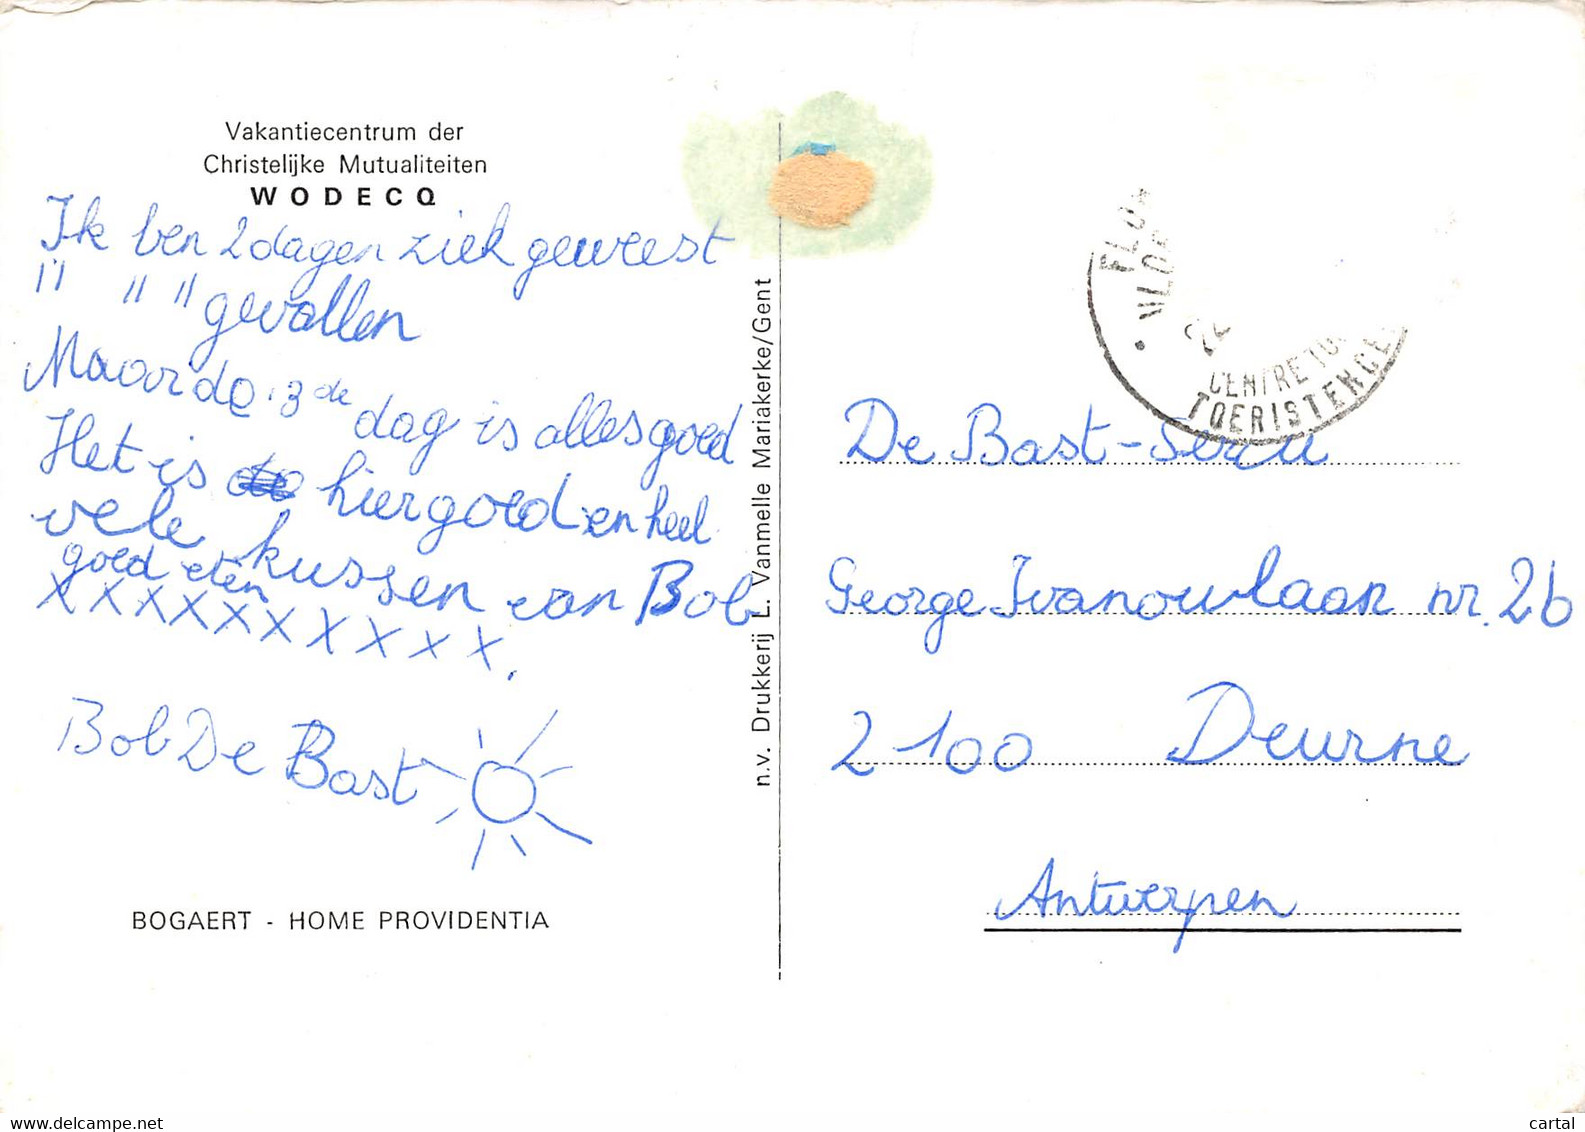 Vakantiecentrum der
Christelijke Mutualiteiten
WODECQ
Ik ben 2 dagen ziek geweest
" " " gevallen
Maar de 3de dag is alles goed
Het is hier goed en heel
goed eten
vele kussen van Bob
X X X X X X X X X X X.
Bob De Bast
BOGAERT - HOME PROVIDENTIA
n.v. Drukkerij L. Vanmelle Mariakerke/Gent
CENTRE TO
TOERISTENCE
De Bast-Sercu
George Ivanowlaan nr. 26
2100 Deurne
Antwerpen
https://www.delcampe.net
cartal